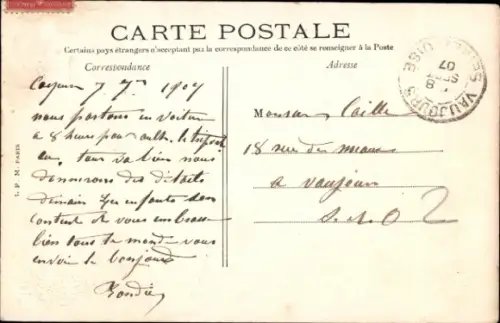 CARTE POSTALE
Certains pays étrangers n'acceptant pas la correspondance de ce côté se renseigner à la Poste
Correspondance
Adresse
7 7re 1907
nous partons en voiture
a 8 heures pour
tout va bien nous
donnerons des détails
demain les enfants
content de vous
bien tout le monde vous
envoi le bonjour
Monsieur Caille
18 rue de meaux
a vaujours
S. et O
VAUJOURS
SEINE ET OISE
07
L. P. M. PARIS